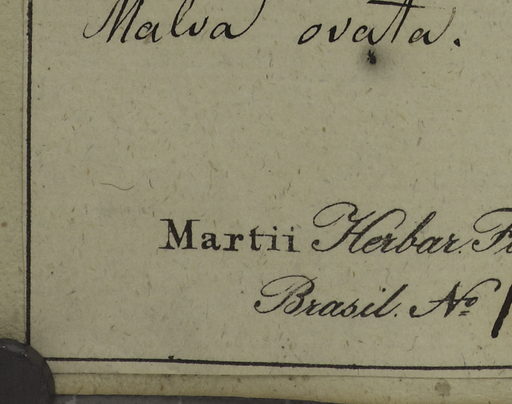 Malva ovata.
Martii Herbar.
Brasil. No